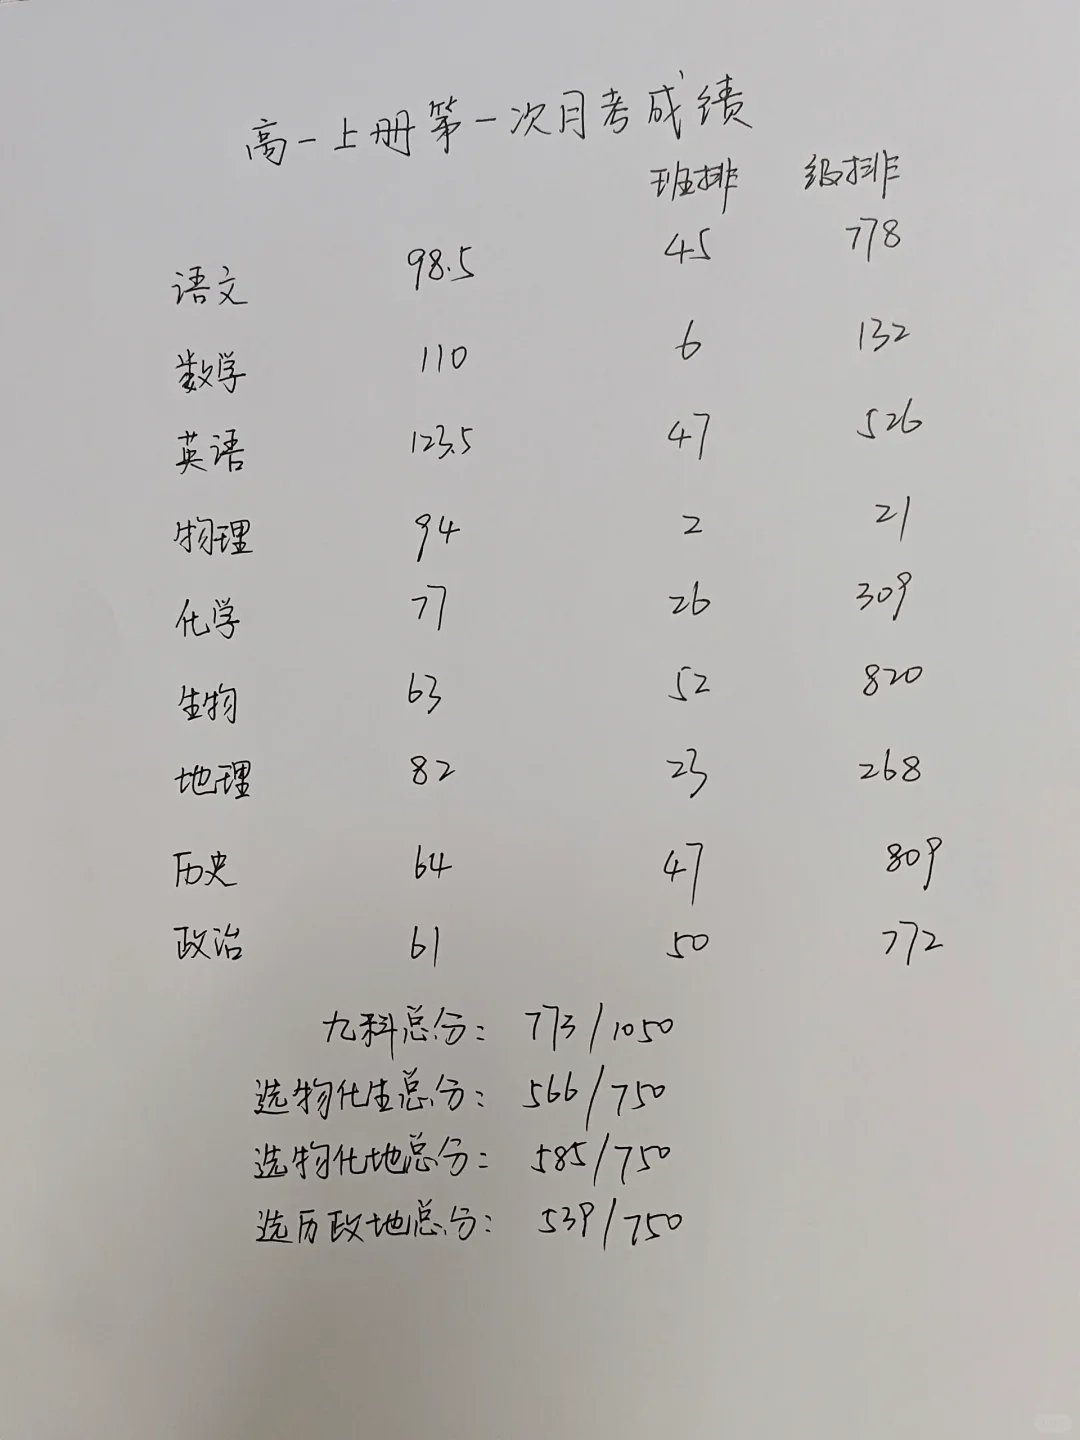 高一上册第一次月考成绩
班排 级排
语文 98.5 45 778
数学 110 6 132
英语 123.5 47 526
物理 94 2 21
化学 77 26 309
生物 63 52 820
地理 82 23 268
历史 64 47 809
政治 61 50 772
九科总分：773/1050
选物化生总分：566/750
选物化地总分：585/750
选历政地总分：539/750